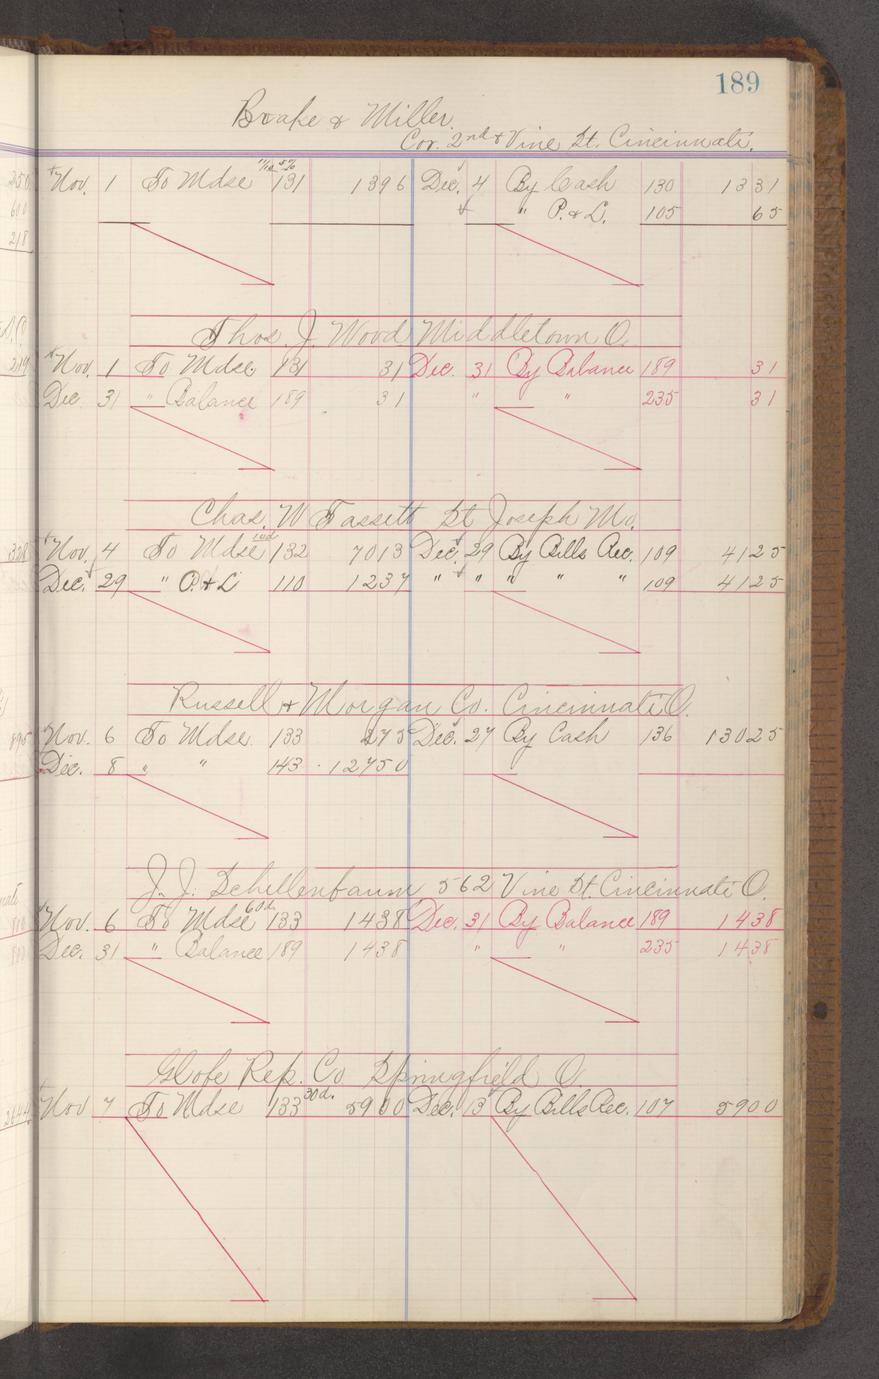 189
Brake & Miller
Cor. 2nd & Vine St. Cincinnati.
Nov. 1 To Mdse 131 1396 Dec. 4 By Cash 130 1331
" P. & L. 105 65
Thos. J. Wood Middletown O.
Nov. 1 To Mdse 131 31 Dec. 31 By Balance 189 31
Dec 31 " Balance 189 31 " " 235 31
Chas. W Fassett St Joseph Mo.
Nov. 4 To Mdse 132 7013 Dec. 29 By Bills Rec. 109 4125
Dec. 29 " P. & L 110 1237 " " " " " 109 4125
Russell & Morgan Co. Cincinnati O.
Nov. 6 To Mdse 133 275 Dec. 27 By Cash 136 13025
Dec. 8 " " 143 12750
J. J. Schellenbaum 562 Vine St. Cincinnati O.
Nov. 6 To Mdse 60d. 133 1438 Dec. 31 By Balance 189 1438
Dec. 31 " Balance 189 1438 " " 235 1438
Globe Rep. Co Springfield O.
Nov 7 To Mdse 133 30d. 5900 Dec. 13 By Bills Rec. 107 5900